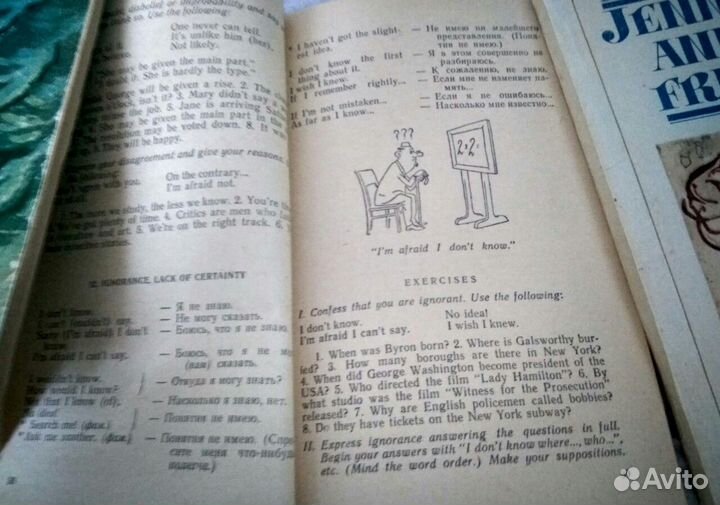 disbelief or improbability and say
so. Use the following:
One never can tell.
It's unlike him (her).
Not likely.
may be given the main part."
it. She is hardly the type."
will be given a rise. 2. The
isn't it? 3. Mary didn't say a
the job. 5. Jane is arriving
be given the main part in the
may be voted down. 8. It will
They will be happy.
disagreement and give your reasons.
On the contrary...
with you.
I'm afraid not.
more we study, the less we know. 2. You're
plenty of time. 4. Critics are men who
and art. 5. We're on the right track. 6.
12. IGNORANCE, LACK OF CERTAINTY
I don't know. — Я не знаю.
I can't (couldn't) say. — Не могу сказать.
Sorry (I'm afraid) I don't know. — Боюсь, что я не знаю.
I'm afraid I can't say. — Боюсь, что я не могу (вам) сказать.
I wouldn't know.
How would I know? — Откуда я могу знать?
Not that I know (of). — Насколько я знаю, нет.
No idea!
* Search me! (фам.) — Понятия не имею.
* Ask me another. (фам.) — Понятия не имею. (Спросите меня что-нибудь полегче.)
* I haven't got the slightest idea. — Не имею ни малейшего представления. (Понятия не имею.)
I don't know the first thing about it. — Я в этом совершенно не разбираюсь.
I wish I knew. — К сожалению, не знаю.
If I remember rightly... — Если мне не изменяет память...
If I'm not mistaken... — Если я не ошибаюсь...
As far as I know... — Насколько мне известно...
???
2×2=
"I'm afraid I don't know."
EXERCISES
I. Confess that you are ignorant. Use the following:
I don't know. No idea!
I'm afraid I can't say. I wish I knew.
1. When was Byron born? 2. Where is Galsworthy bur-
ied? 3. How many boroughs are there in New York?
4. When did George Washington become president of the
USA? 5. Who directed the film "Lady Hamilton"? 6. By
what studio was the film "Witness for the Prosecution"
released? 7. Why are English policemen called bobbies?
8. Do they have tickets on the New York subway?
II. Express ignorance answering the questions in full.
Begin your answers with "I don't know where..., who...",
etc. (Mind the word order.) Make your suppositions.
JENN
AN
FR
Avito